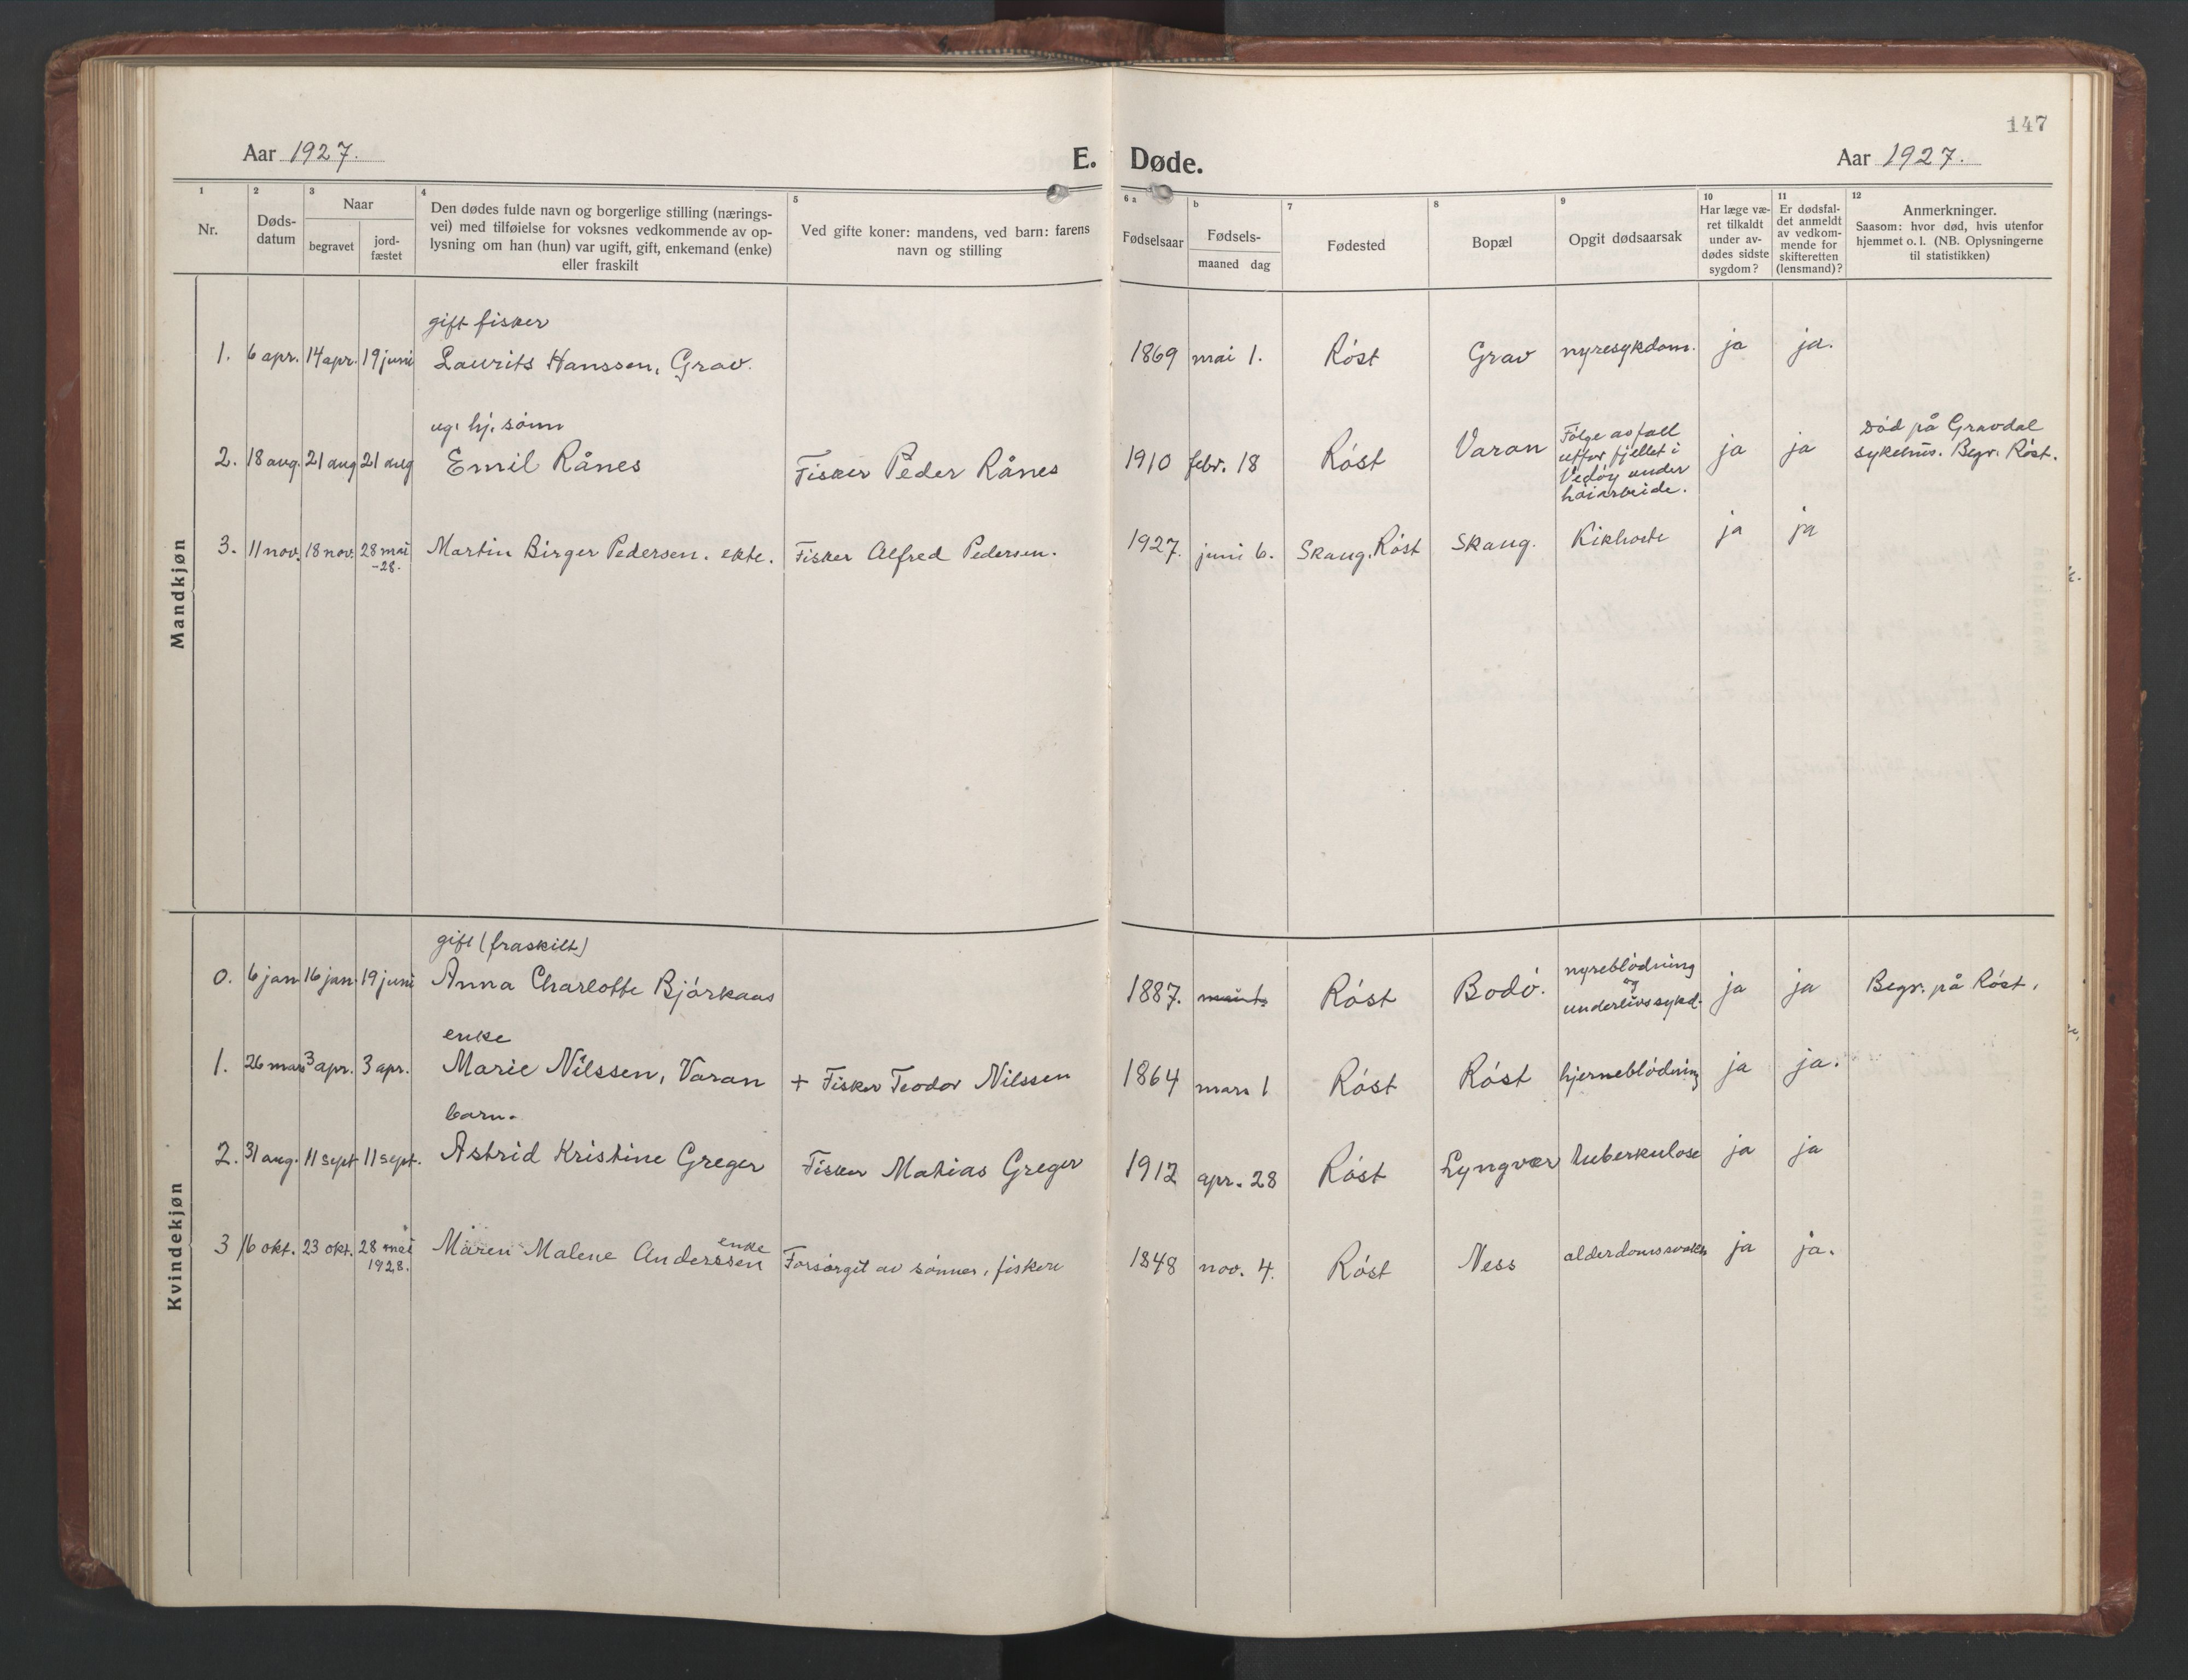 147
Aar 1927.
E. Døde.
Aar 1927.
1
Nr.
2
Døds-
datum
3
Naar
begravet
jord-
fæstet
4
Den dødes fulde navn og borgerlige stilling (nærings-
vei) med tilføielse for voksnes vedkommende av op-
lysning om han (hun) var ugift, gift, enkemand (enke)
eller fraskilt
5
Ved gifte koner: mandens, ved barn: farens
navn og stilling
6 a
Fødselsaar
b
Fødsels-
maaned dag
7
Fødested
8
Bopæl
9
Opgit dødsaarsak
10
Har læge væ-
ret tilkaldt
under av-
dødes sidste
sygdom?
11
Er dødsfal-
det anmeldt
av vedkom-
mende for
skifteretten
(lensmand)?
12
Anmerkninger.
Saasom: hvor død, hvis utenfor
hjemmet o. l. (NB. Oplysningerne
til statistikken)
Mandkjøn
gift fisker
1. 6 apr. 14 apr. 19 juni Laurits Hanssen, Grav. 1869 mai 1. Røst Grav nyresykdom. ja ja.
ug. hj. sønn
2. 18 aug. 21 aug 21 aug Emil Rånes Fisker Peder Rånes 1910 febr. 18 Røst Varan
Følge av fall
utfor fjellet i
Vedøy under
høiarbeide.
ja ja
Død på Gravdal
sykehus. Begr. Røst.
3. 11 nov. 18 nov. 28 mai
-28.
Martin Birger Pedersen. ekte. Fisker Alfred Pedersen. 1927. juni 6. Skaug, Røst Skaug. Kikhoste ja ja
Kvindekjøn
gift (fraskilt)
0. 6 jan 16 jan 19 juni Anna Charlotte Bjørkaas 1887. Røst Bodø.
nyreblødning
og
underlivssykd.
ja ja Begr. på Røst.
enke
1. 26 mars 3 apr. 3 apr. Marie Nilssen, Varan + Fisker Teodor Nilssen 1864 mars 1 Røst Røst hjerneblødning ja ja.
barn.
2. 31 aug. 11 sept 11 sept. Astrid Kristine Greger Fisker Matias Greger 1912 apr. 28 Røst Lyngvær tuberkulose ja ja
enke
3 16 okt. 23 okt. 28 mai
1928.
Maren Malene Anderssen Forsørget av sønner, fiskere 1848 nov. 4. Røst Ness ja ja.